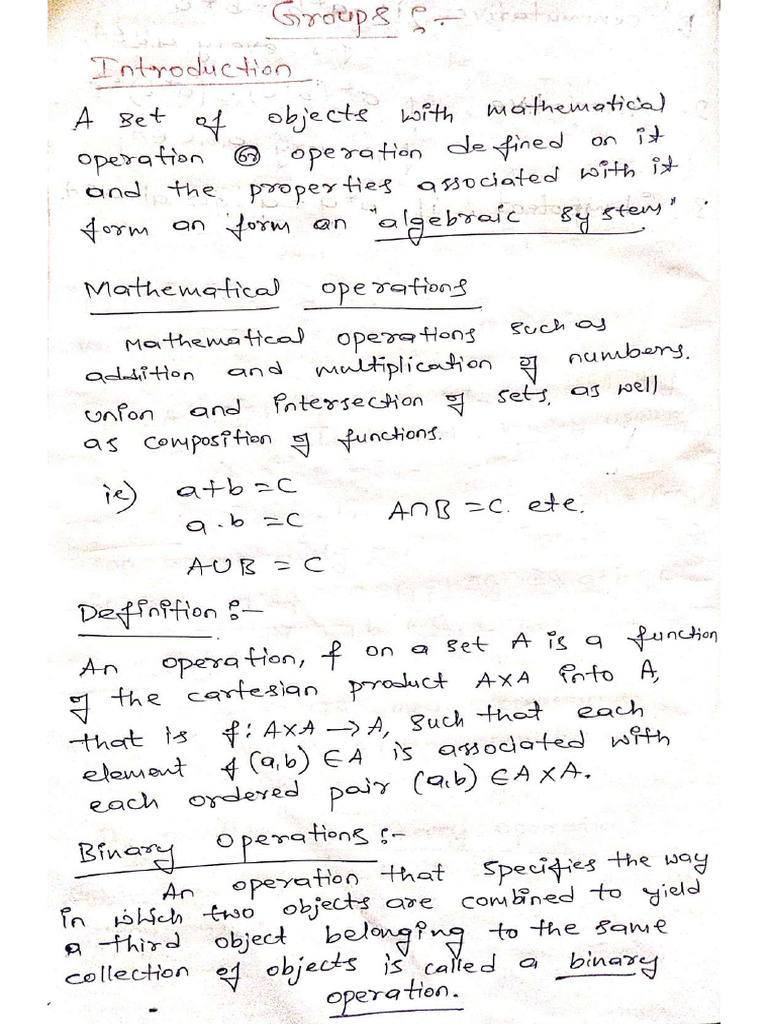 Groups :-
Introduction
A set of objects with mathematical
operation or operation defined on it
and the properties associated with it
form an form an "algebraic system".
Mathematical operations
Mathematical operations such as
addition and multiplication of numbers.
union and intersection of sets, as well
as composition of functions.
ie) a+b = C
a.b = C
A∩B = C. etc.
A∪B = C
Definition :-
An operation, f on a set A is a function
of the cartesian product A×A into A,
that is f: A×A → A, such that each
element f(a,b) ∈ A is associated with
each ordered pair (a,b) ∈ A×A.
Binary operations :-
An operation that specifies the way
in which two objects are combined to yield
a third object belonging to the same
collection of objects is called a binary
operation.